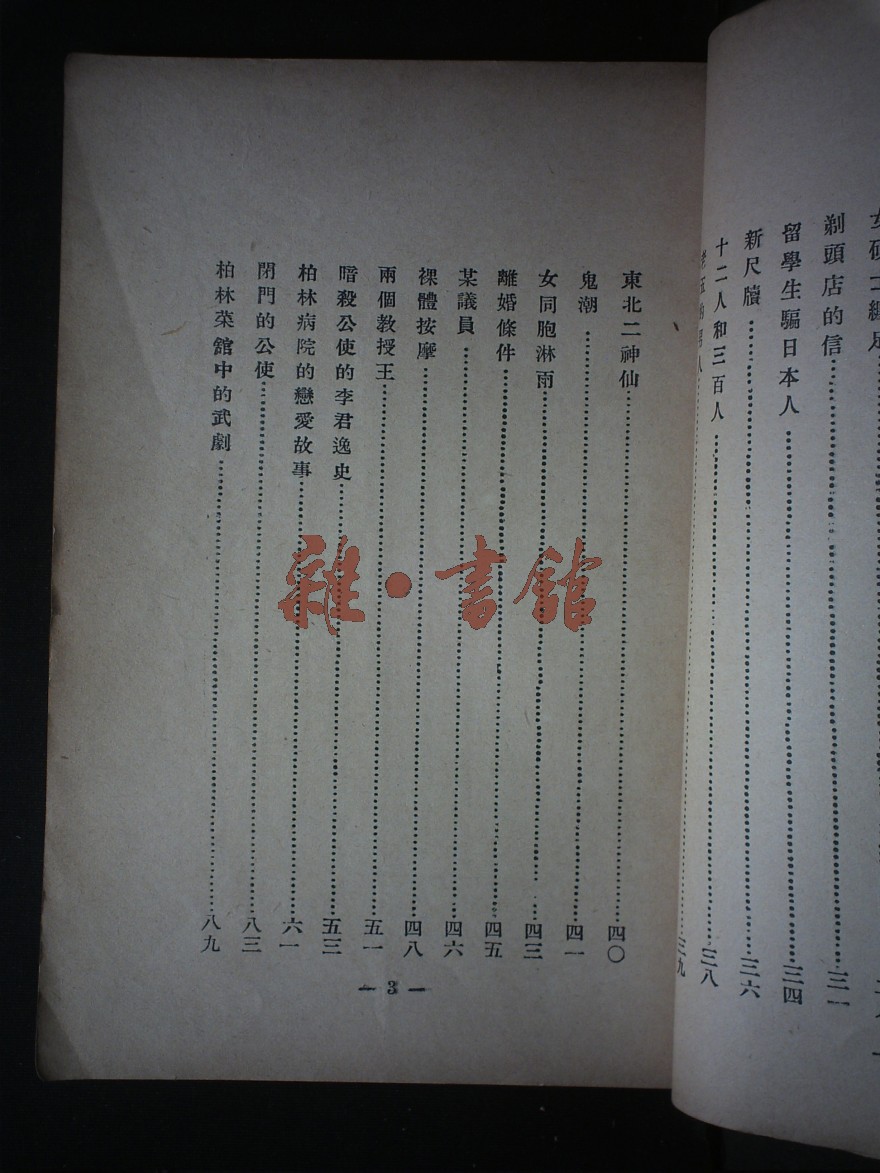 剃頭店的信……三一
留學生騙日本人……三四
新尺牘……三六
十二人和三百人……三八
三九
東北二神仙……四〇
鬼潮……四一
女同胞淋雨……四三
離婚條件……四五
某議員……四六
裸體按摩……四八
兩個教授王……五一
暗殺公使的李君逸史……五三
柏林病院的戀愛故事……六一
閉門的公使……八三
柏林菜館中的武劇……八九
— 3 —
雜·書館